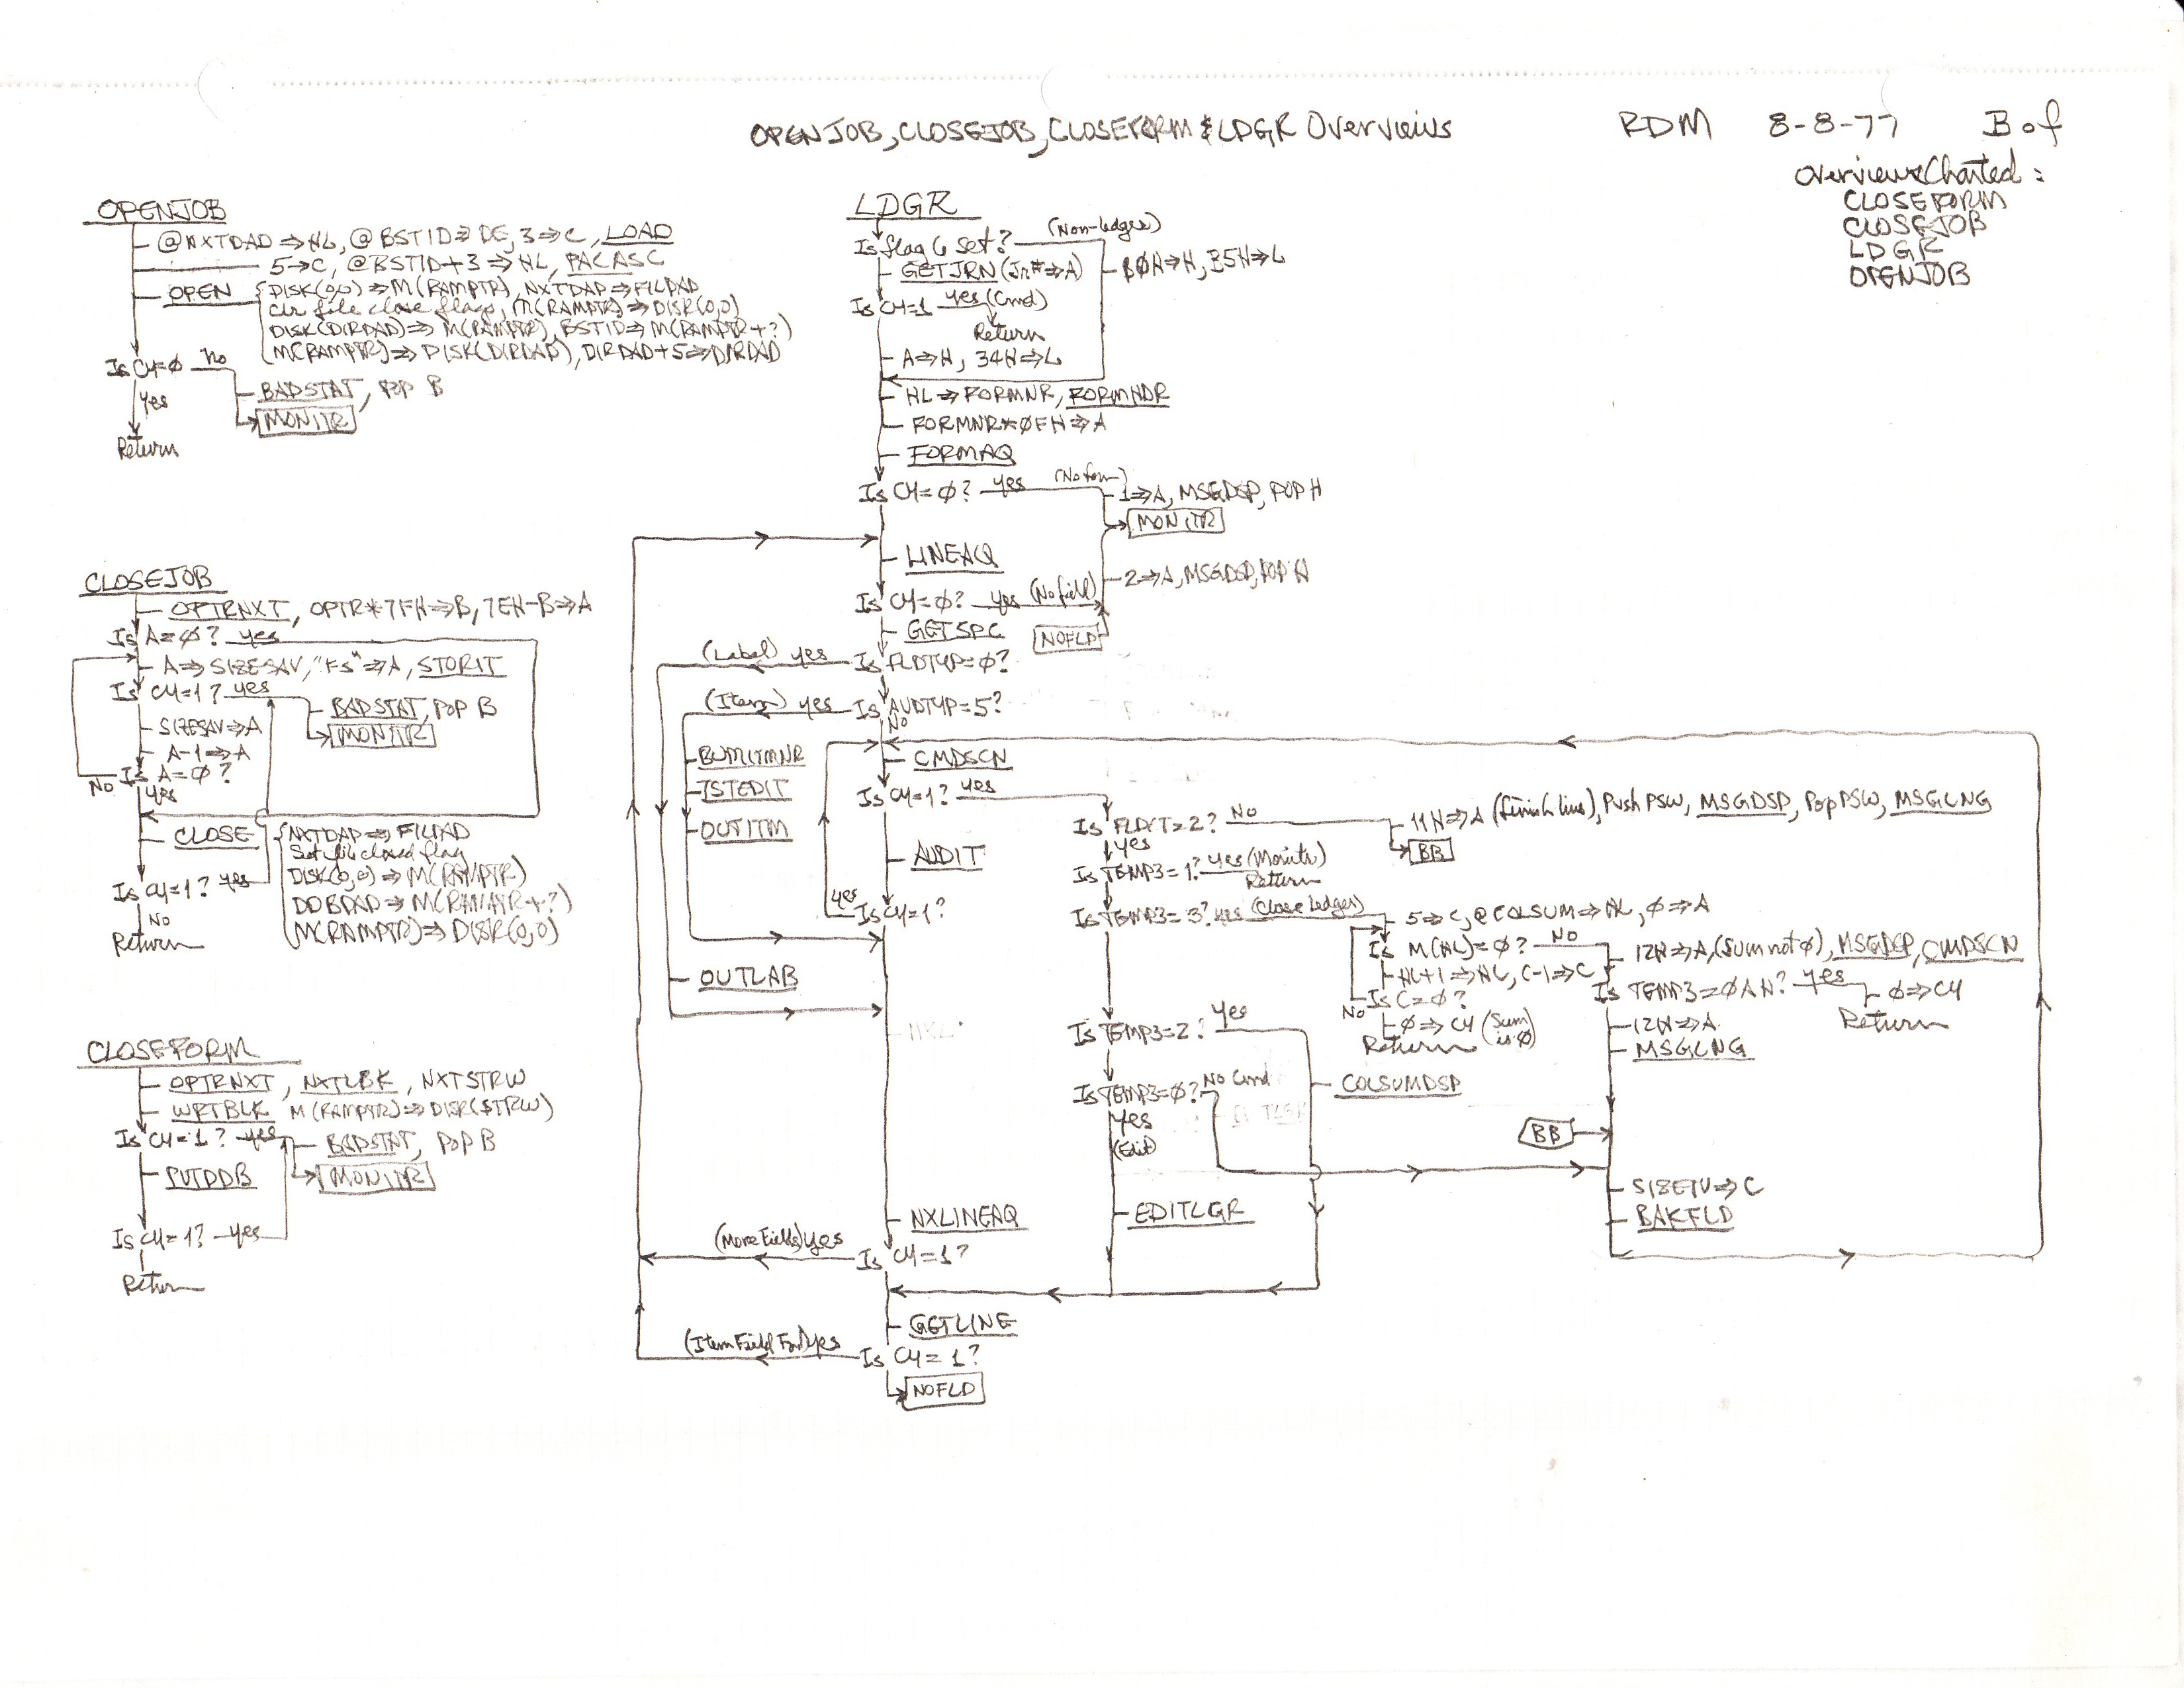 OPENJOB, CLOSEJOB, CLOSEFORM & LDGR Overviews
RDM 8-8-77 B of
Overviews Charted:
CLOSEFORM
CLOSEJOB
LDGR
OPENJOB
OPENJOB
@NXTDAD⇒HL, @BSTID⇒DE, 3⇒C, LOAD
5→C, @BSTID+3⇒HL, PACASC
OPEN {DISK(0,0)⇒M(RAMPTR), NXTDAP⇒FILDAD
clr file close flag, M(RAMPTR)⇒DISK(0,0)
DISK(DIRDAD)⇒M(RAMPTR), BSTID⇒M(RAMPTR+?)
M(RAMPTR)⇒DISK(DIRDAD), DIRDAD+5⇒DIRDAD
Is CY=Ø no
BADSTAT, POP B
MONITR
yes
Return
CLOSEJOB
OPTRNXT, OPTR*7FH⇒B, 7EH-B⇒A
Is A=Ø? yes
A⇒SIZESAV, "Fs"⇒A, STORIT
Is CY=1? yes
BADSTAT, POP B
MONITR
SIZESAV⇒A
A-1⇒A
No Is A=Ø?
yes
CLOSE {NXTDAP⇒FILDAD
Set file closed flag
DISK(0,0)⇒M(RAMPTR)
DDBDAD⇒M(RAMPTR+?)
M(RAMPTR)⇒DISK(0,0)
Is CY=1? yes
No
Return
CLOSEFORM
OPTRNXT, NXTLBK, NXTSTRW
WRTBLK M(RAMPTR)⇒DISK(STRW)
Is CY=1? yes
BADSTAT, POP B
MONITR
PUTDDB
Is CY=1? yes
Return
LDGR
Is flag 6 set? (Non-ledger)
GETJRN (Jr#⇒A)
BØH⇒H, 35H⇒L
Is CY=1 yes (Cmd)
Return
A⇒H, 34H⇒L
HL⇒FORMNR, FORMHDR
FORMNR*ØFH⇒A
FORMAQ
Is CY=Ø? yes (No form)
1⇒A, MSGDSP, POP H
MONITR
LINEAQ
2⇒A, MSGDSP, POP H
Is CY=Ø? yes (No field)
GETSPC
NOFLD
(Label) yes Is FLDTYP=Ø?
(Item) yes Is AUDTYP=5?
No
BUMITMNR
CMDSCN
ISTEDIT
Is CY=1? yes
OUTITM
Is FLDCT=2? No
11H⇒A (finish line), Push PSW, MSGDSP, Pop PSW, MSGCNG
BB
yes
AUDIT
Is TEMP3=1? yes (Monitr)
Return
yes Is CY=1?
Is TEMP3=3? yes (Close ledger)
5⇒C, @COLSUM⇒HL, Ø⇒A
Is M(HL)=Ø? No
12H⇒A, (Sum not Ø), MSGDSP, CMDSCN
HL+1⇒HL, C-1⇒C
Is C=Ø?
No
Ø⇒CY (Sum is Ø)
Return
Is TEMP3=ØAH? yes
Ø⇒CY
Return
12H⇒A
MSGCNG
OUTLAB
Is TEMP3=2? yes
COLSUMDSP
Is TEMP3=Ø? No Cmd
yes
(Edit)
BB
SIZEIV⇒C
BAKFLD
EDITLGR
NXLINEAQ
(More Fields) yes Is CY=1?
GETLINE
(Item Field Fnd) yes Is CY=1?
NOFLD